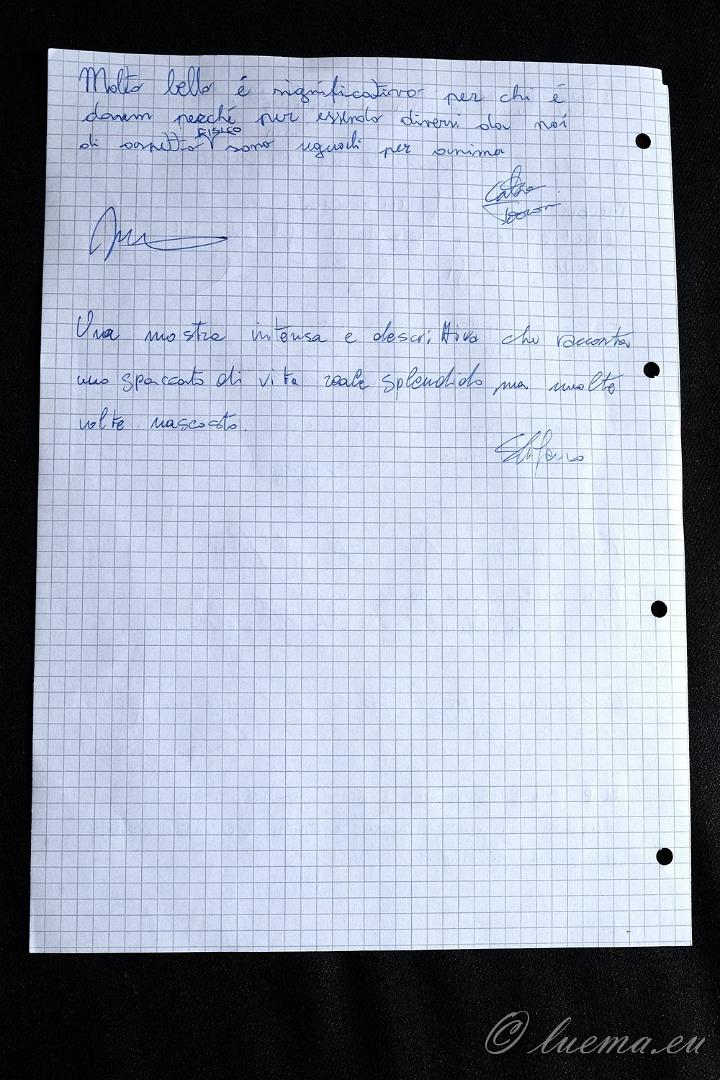 Molto bello é significativo per chi é
down perché pur essendo diversi da noi
FISICO
di aspetto sono uguali per anima
Una mostra intensa e descrittiva che racconta
uno spaccato di vita reale splendido ma molte
volte nascosto.
Stefano
© luema.eu